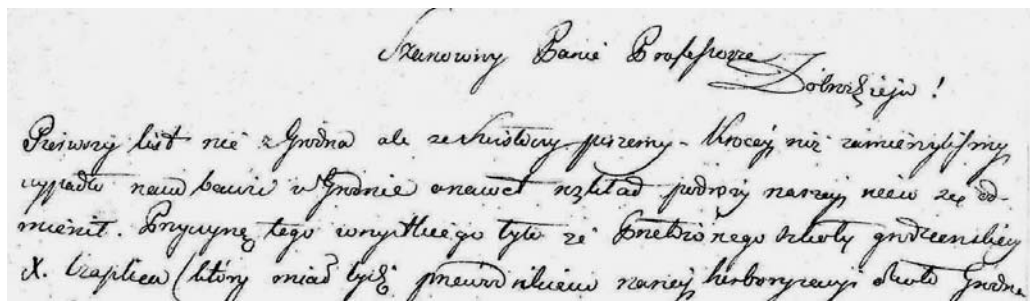 Szanowny Panie Professorze
Dobrodzieju!
Pierwszy list nie z Grodna ale ze Swisłoczy piszemy. Krócej niż zamierzyliśmy
wypadło nam bawić w Grodnie a nawet rozkład podroży naszej nieco się od-
mienił. Przyczyną tego wszystkiego było że Prefekt szkoły grodzieńskiey
X. Czaplicu (który miał bydź przewodnikiem naszej herboryzacyi około Grodna